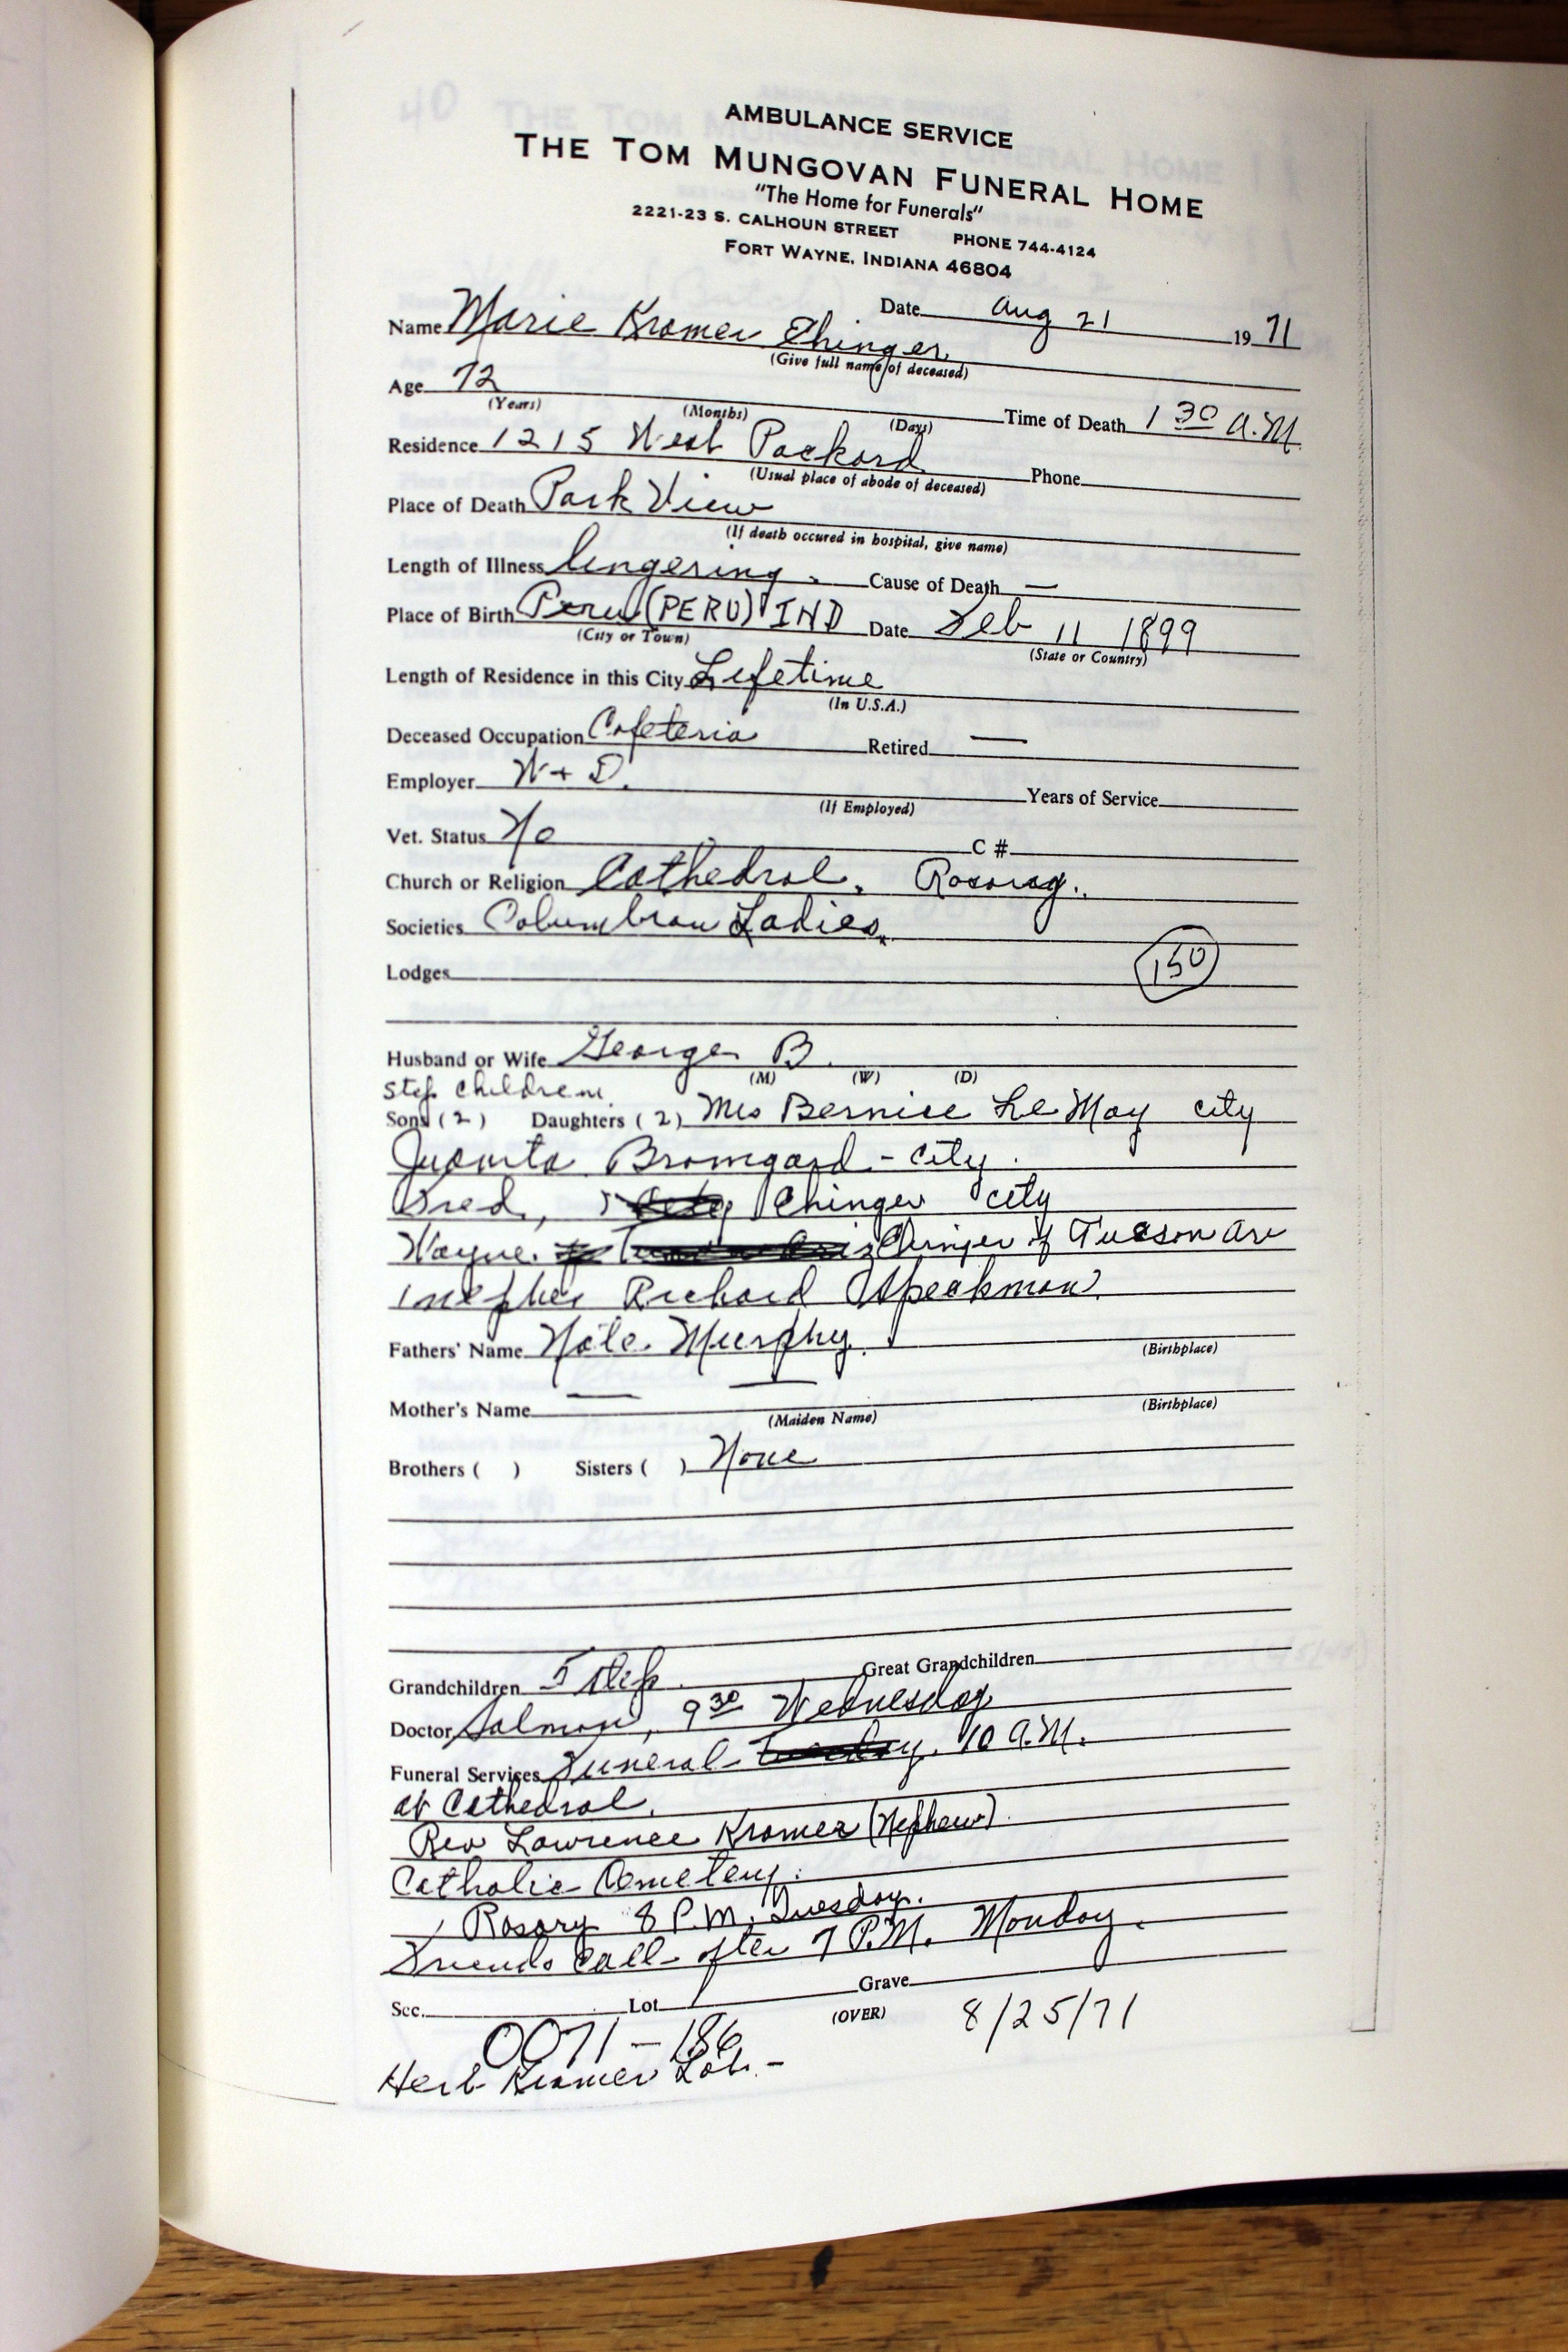 AMBULANCE SERVICE
THE TOM MUNGOVAN FUNERAL HOME
"The Home for Funerals"
2221-23 S. CALHOUN STREET PHONE 744-4124
FORT WAYNE, INDIANA 46804
Date Aug 21 1971
Name Marie Kramer Ehinger
(Give full name of deceased)
Age 72 Time of Death 1 30 A.M.
(Years) (Months) (Days)
Residence 1215 West Packard Phone
(Usual place of abode of deceased)
Place of Death Park View
(If death occured in hospital, give name)
Length of Illness lingering. Cause of Death —
Place of Birth Peru (PERU) IND Date Feb 11 1899
(City or Town) (State or Country)
Length of Residence in this City Lifetime
(In U.S.A.)
Deceased Occupation Cafeteria Retired —
Employer W + D.
(If Employed) Years of Service
Vet. Status No C #
Church or Religion Cathedral. Rosary.
Societies Columbian Ladies.
Lodges 150
Husband or Wife George B.
(M) (W) (D)
Step Children
Sons (2) Daughters (2) Mrs Bernice Le May city
Juanita Bromgard - city.
Fred, Ehinger city
Wayne. Ehinger of Tucson Ari
1 nephew Richard Speakman
Fathers' Name Nate Murphy.
(Birthplace)
Mother's Name — —
(Maiden Name) (Birthplace)
Brothers ( ) Sisters ( ) None
Grandchildren 5 step. Great Grandchildren
Doctor Salmon, 9 30 Wednesday
Funeral Services Funeral 10 A.M.
at Cathedral.
Rev Lawrence Kramer (Nephew).
Catholic Cemetery.
Rosary 8 P.M. Tuesday.
Friends Call after 7 P.M. Monday.
Sec. Lot Grave
(OVER) 8/25/71
0071-186
Herb Kramer Lot. -